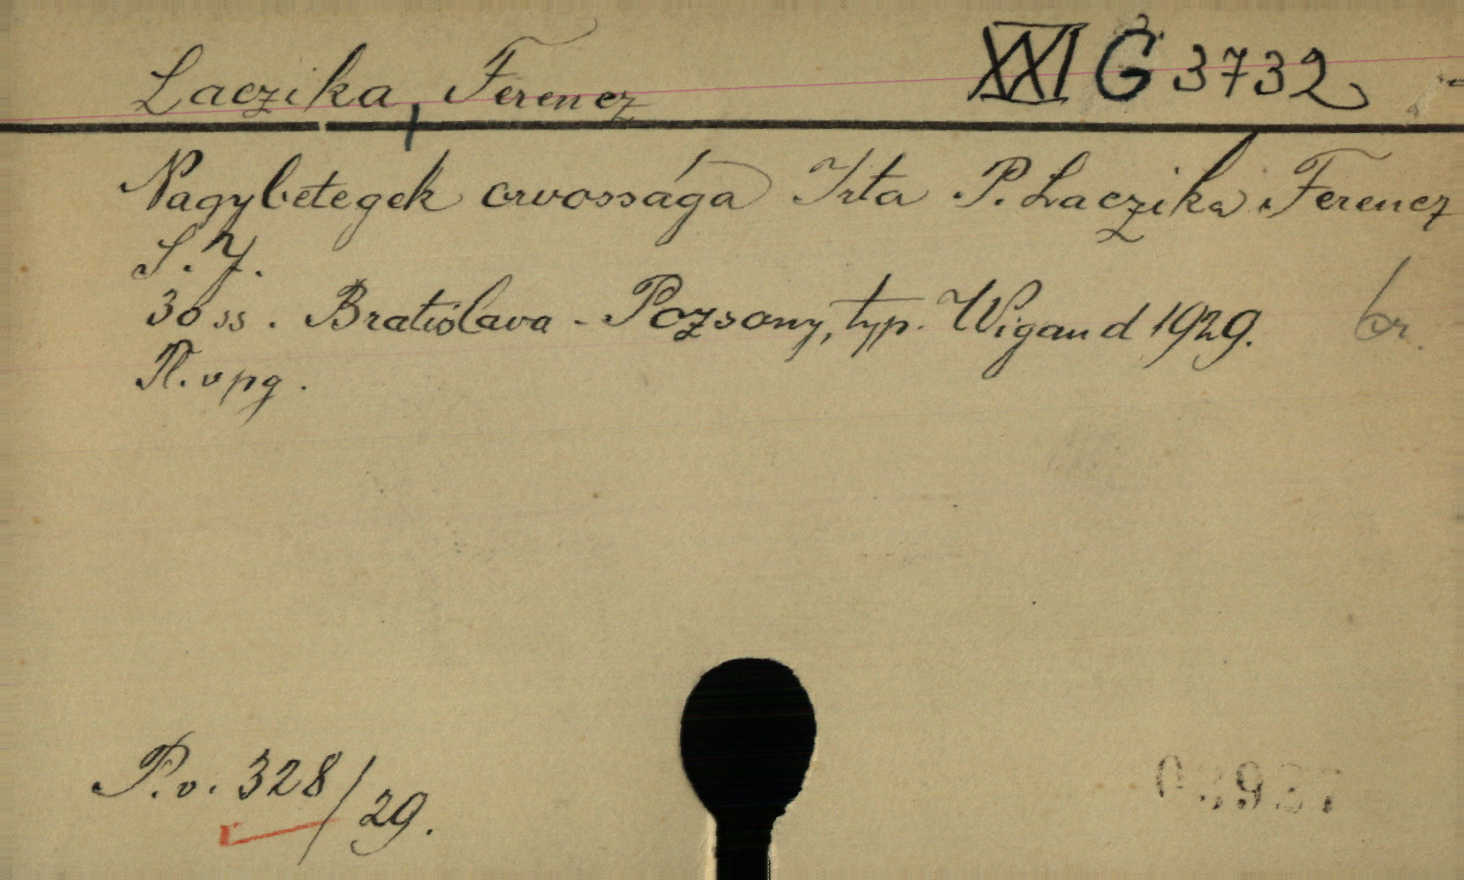 Laczika, Ferencz XXI G 3732
Nagybetegek orvossága Irta P. Laczika Ferencz
S. J.
30 ss. Bratislava - Pozsony, typ. Wigand 1929. br.
Tl. v pg.
P. v. 328/29.